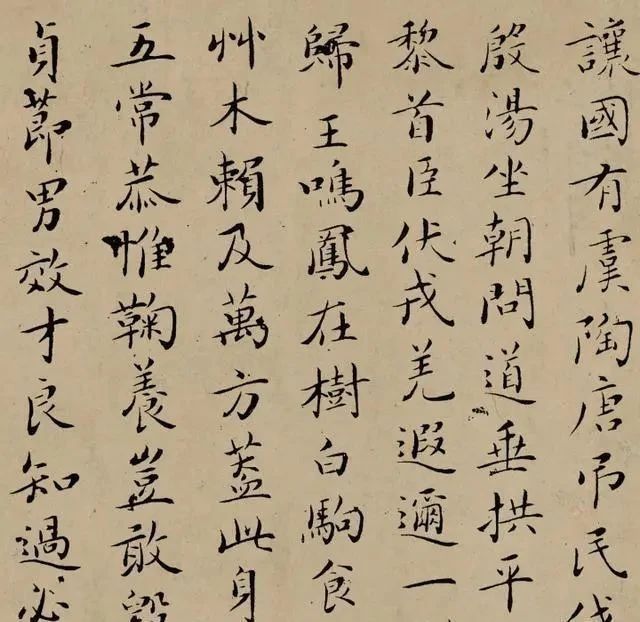 讓國有虞陶唐吊民伐
殷湯坐朝問道垂拱平
黎首臣伏戎羌遐邇一
歸王鳴鳳在樹白駒食
艸木賴及萬方蓋此身
五常恭惟鞠養豈敢毀
貞莭男效才良知過必